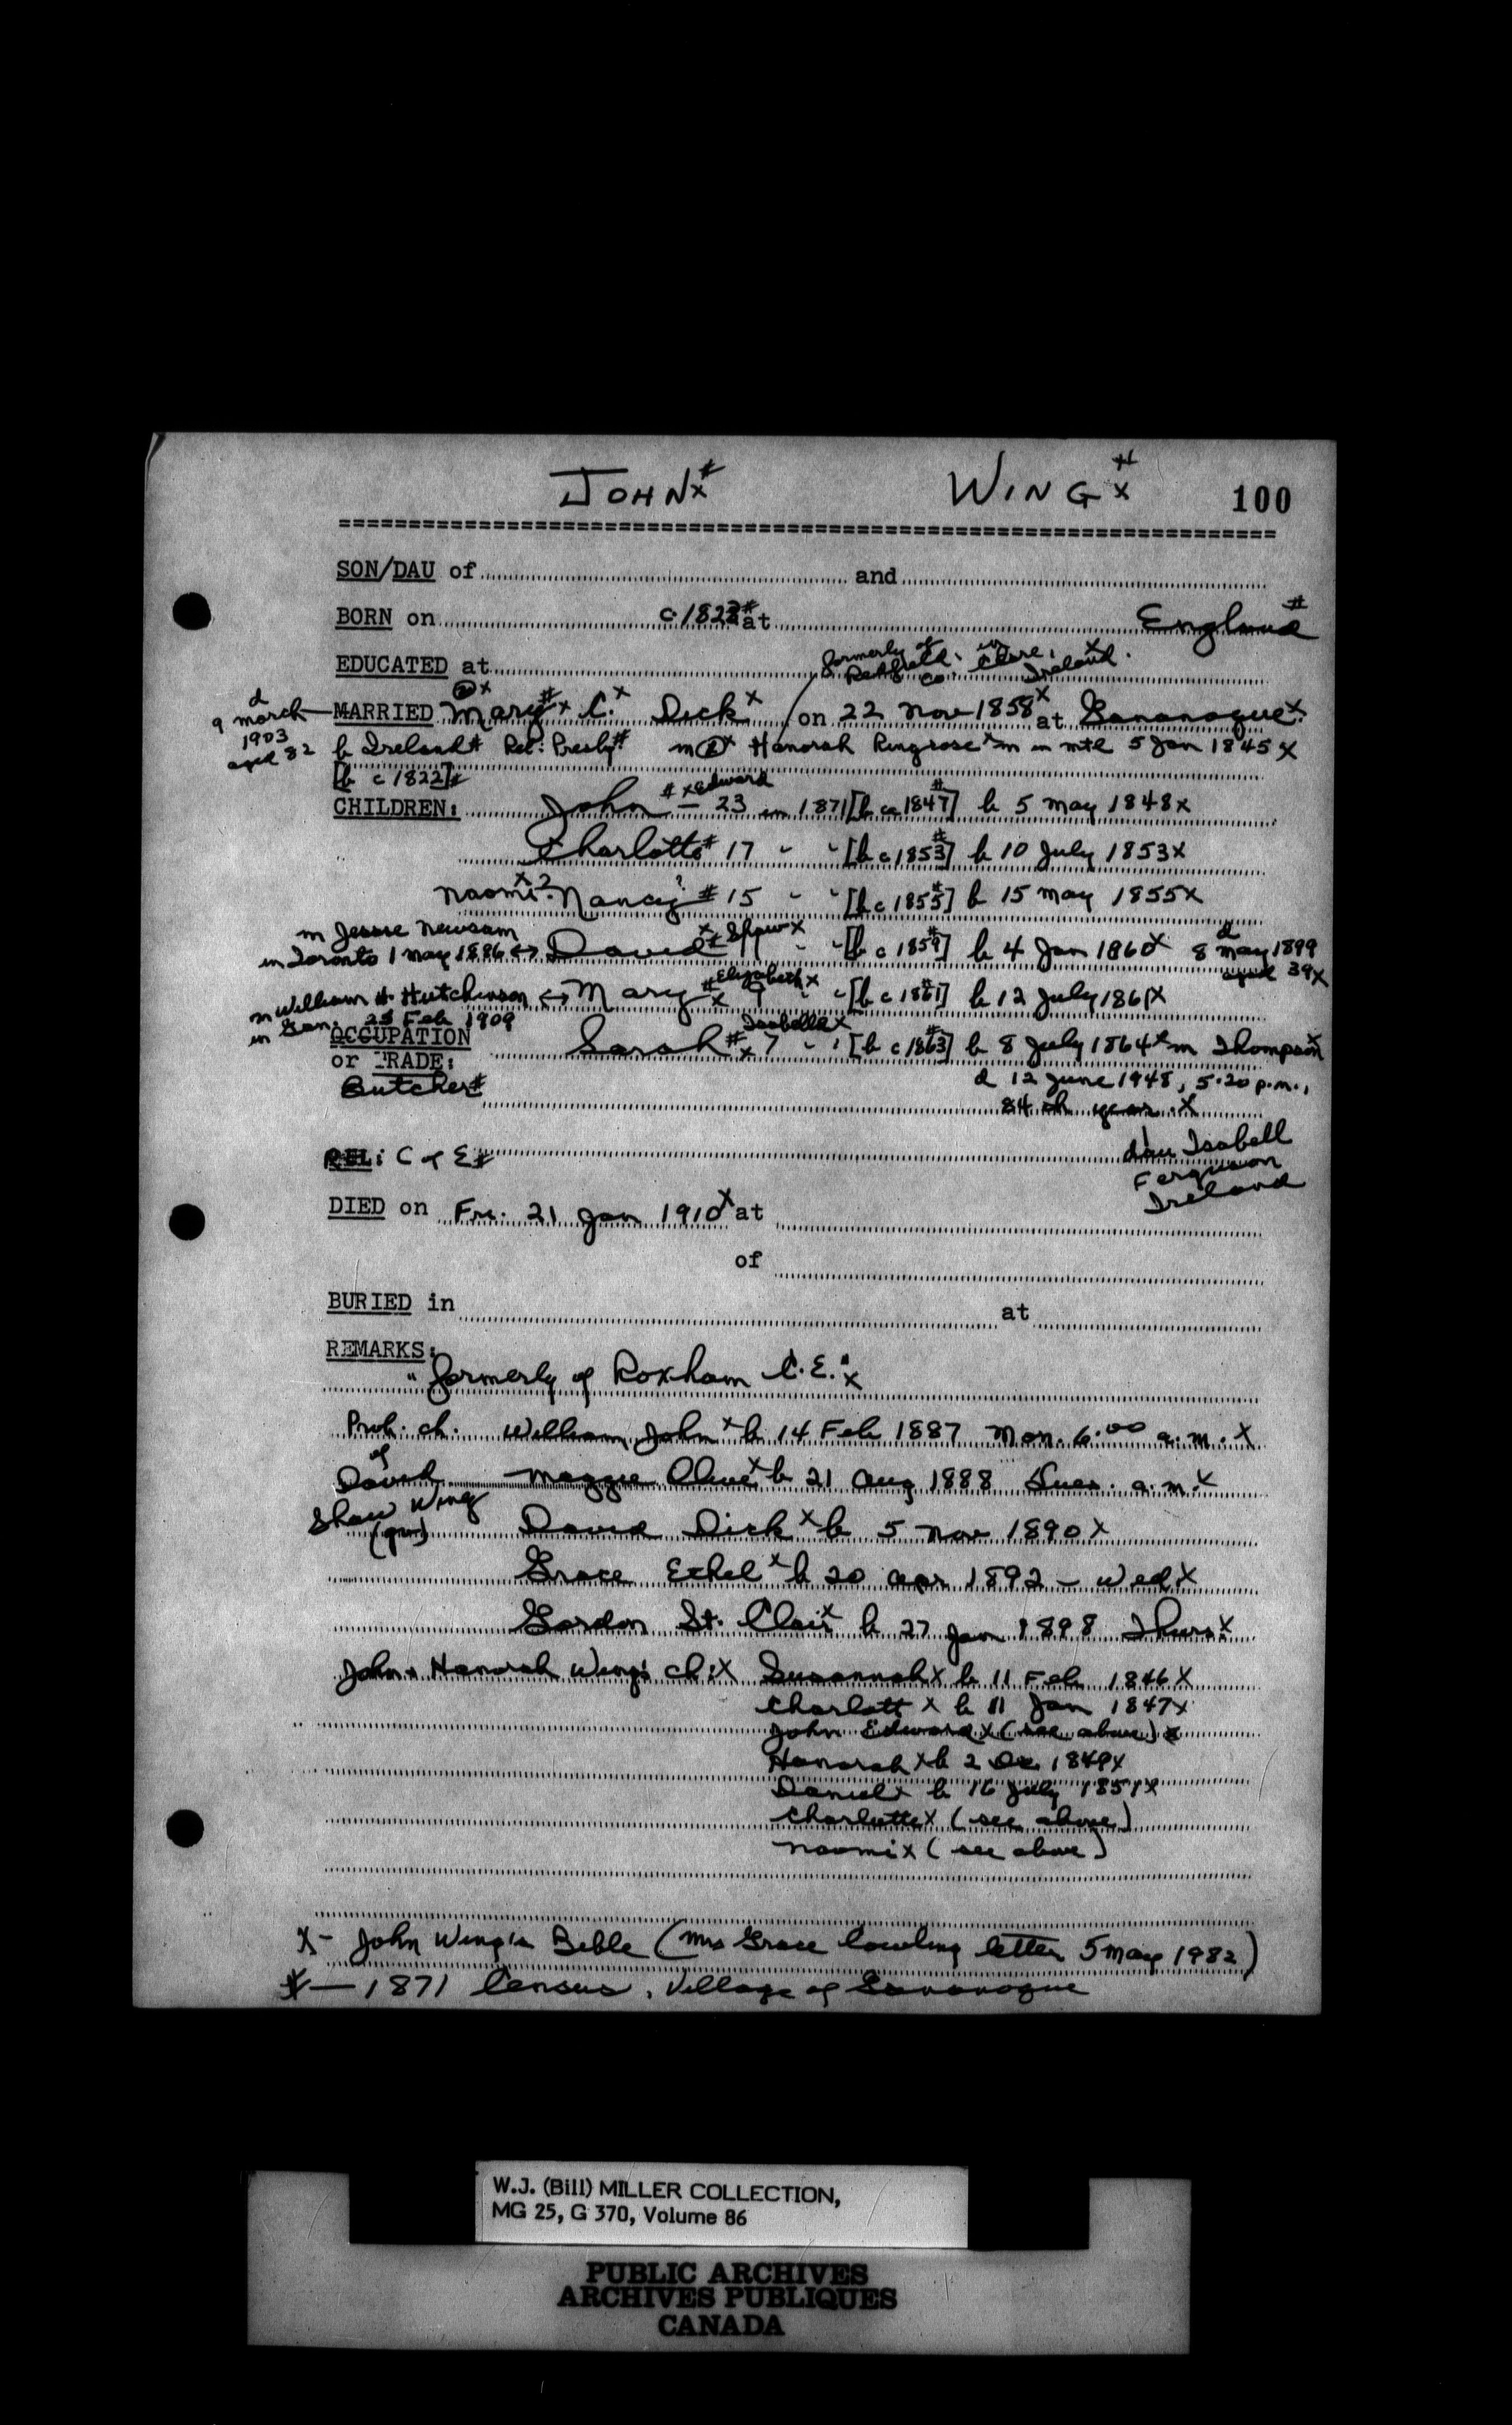 JOHN # x WING # x 100
SON/DAU of and
BORN on c 1828 # at England #
EDUCATED at
formerly of in
Co. Clare, Ireland. x
d
9 March
1903
aged 82
MARRIED ② x Mary # x C. x Dick x / on 22 Nov 1858 x at Gananoque x
b Ireland # Rel: Presby # m Hanorah Ringrose x m in mtl 5 Jan 1845 x
[b c 1822] #
CHILDREN: John # x Edward – 23 in 1871 [b ca 1847 #] b 5 May 1848 x
Charlotte # 17 " " [b c 1853 #] b 10 July 1853 x
Naomi x? Nancy? # 15 " " [b c 1855 #] b 15 May 1855 x
m Jessie Newsam
in Toronto 1 May 1886 ↔ David x # Shaw x 11 " " [b c 1859 #] b 4 Jan 1860 x d 8 May 1899
aged 39 x
m William H. Hutchinson ↔ Mary # x Elizabeth x 9 " " [b c 1861 #] b 12 July 1861 x
in Gan. 25 Feb 1909
OCCUPATION
or TRADE:
Sarah # x Isabella x 7 " " [b c 1863 #] b 8 July 1864 x m Thompson x
Butcher #
d 12 June 1948, 5.20 p.m.,
84th year. x
REL: C of E #
dau Isabell
Ferguson
Ireland
DIED on Fri. 21 Jan 1910 x at
of
BURIED in at
REMARKS:
"formerly of Roxham C.E." x
Prob. ch. William John x b 14 Feb 1887 Mon. 6.00 a.m. x
of
David Maggie Olive x b 21 Aug 1888 Tues. a.m. x
Shaw Wing
(qv) David Dick x b 5 Nov 1890 x
Grace Ethel x b 20 Apr 1892 – Wed x
Gordon St. Clair x b 27 Jan 1898 Thurs x
John + Hanorah Wing's ch: x Susannah x b 11 Feb 1846 x
Charlott x b 11 Jan 1847 x
John Edward x (see above) x
Hanorah x b 2 Dec 1849 x
Daniel x b 16 July 1851 x
Charlotte x (see above)
Naomi x (see above)
x – John Wing's Bible (Mrs Grace Cowling letter 5 May 1982)
# – 1871 Census, Village of Gananoque
W.J. (Bill) MILLER COLLECTION,
MG 25, G 370, Volume 86
PUBLIC ARCHIVES
ARCHIVES PUBLIQUES
CANADA